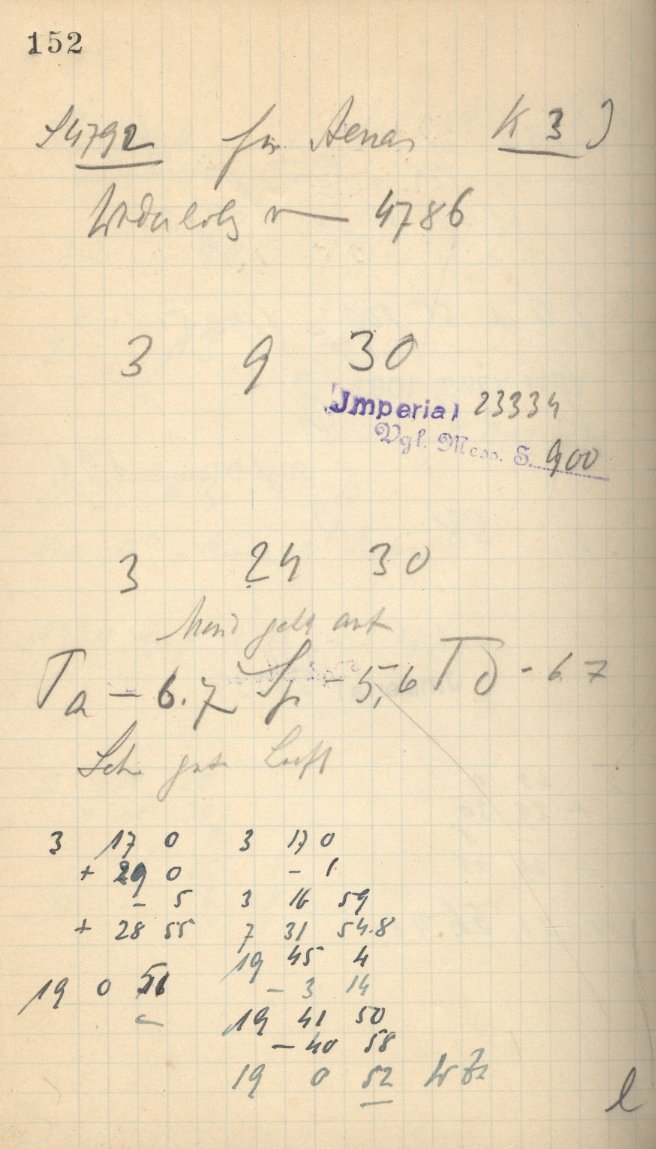 152
S 4792 für K 3
Wiederholg v 4786
3 9 30
Imperial 23334
Vgl. Mess. S. 900
3 24 30
Mond geht auf
Ta - 6.7 Sp - 5,6 Td - 6.7
Sehr gute Luft
3 17 0 3 17 0
+ 29 0 - 1
- 5 3 16 59
+ 28 55 7 31 54.8
19 45 4
19 0 51 - 3 14
19 41 50
- 40 58
19 0 52 WZ
l